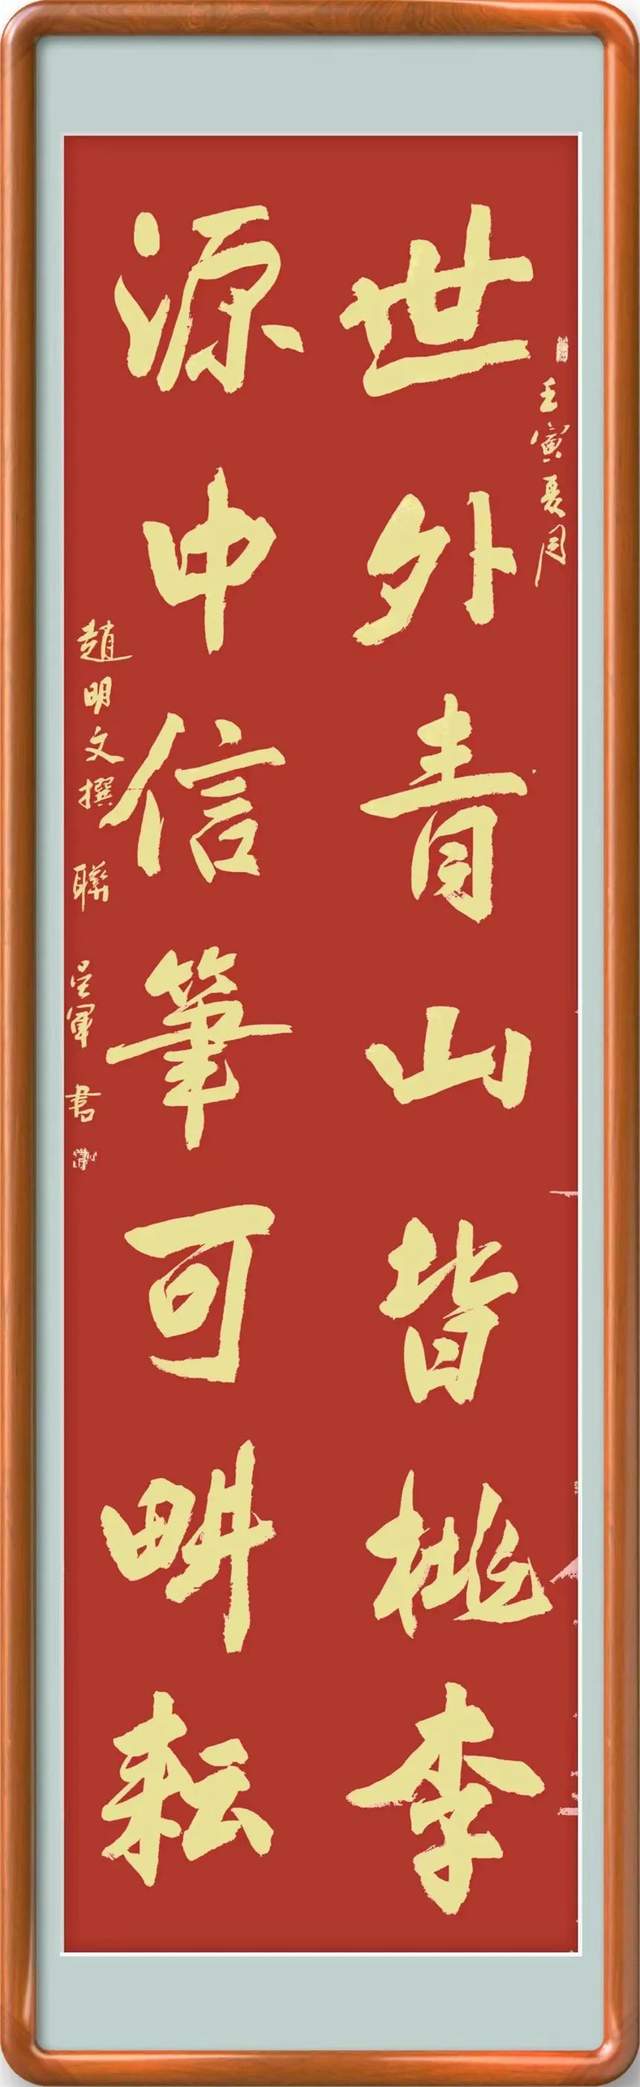 壬寅夏月
世外青山皆桃李
源中信筆可畊耘
趙明文撰聯 軍書